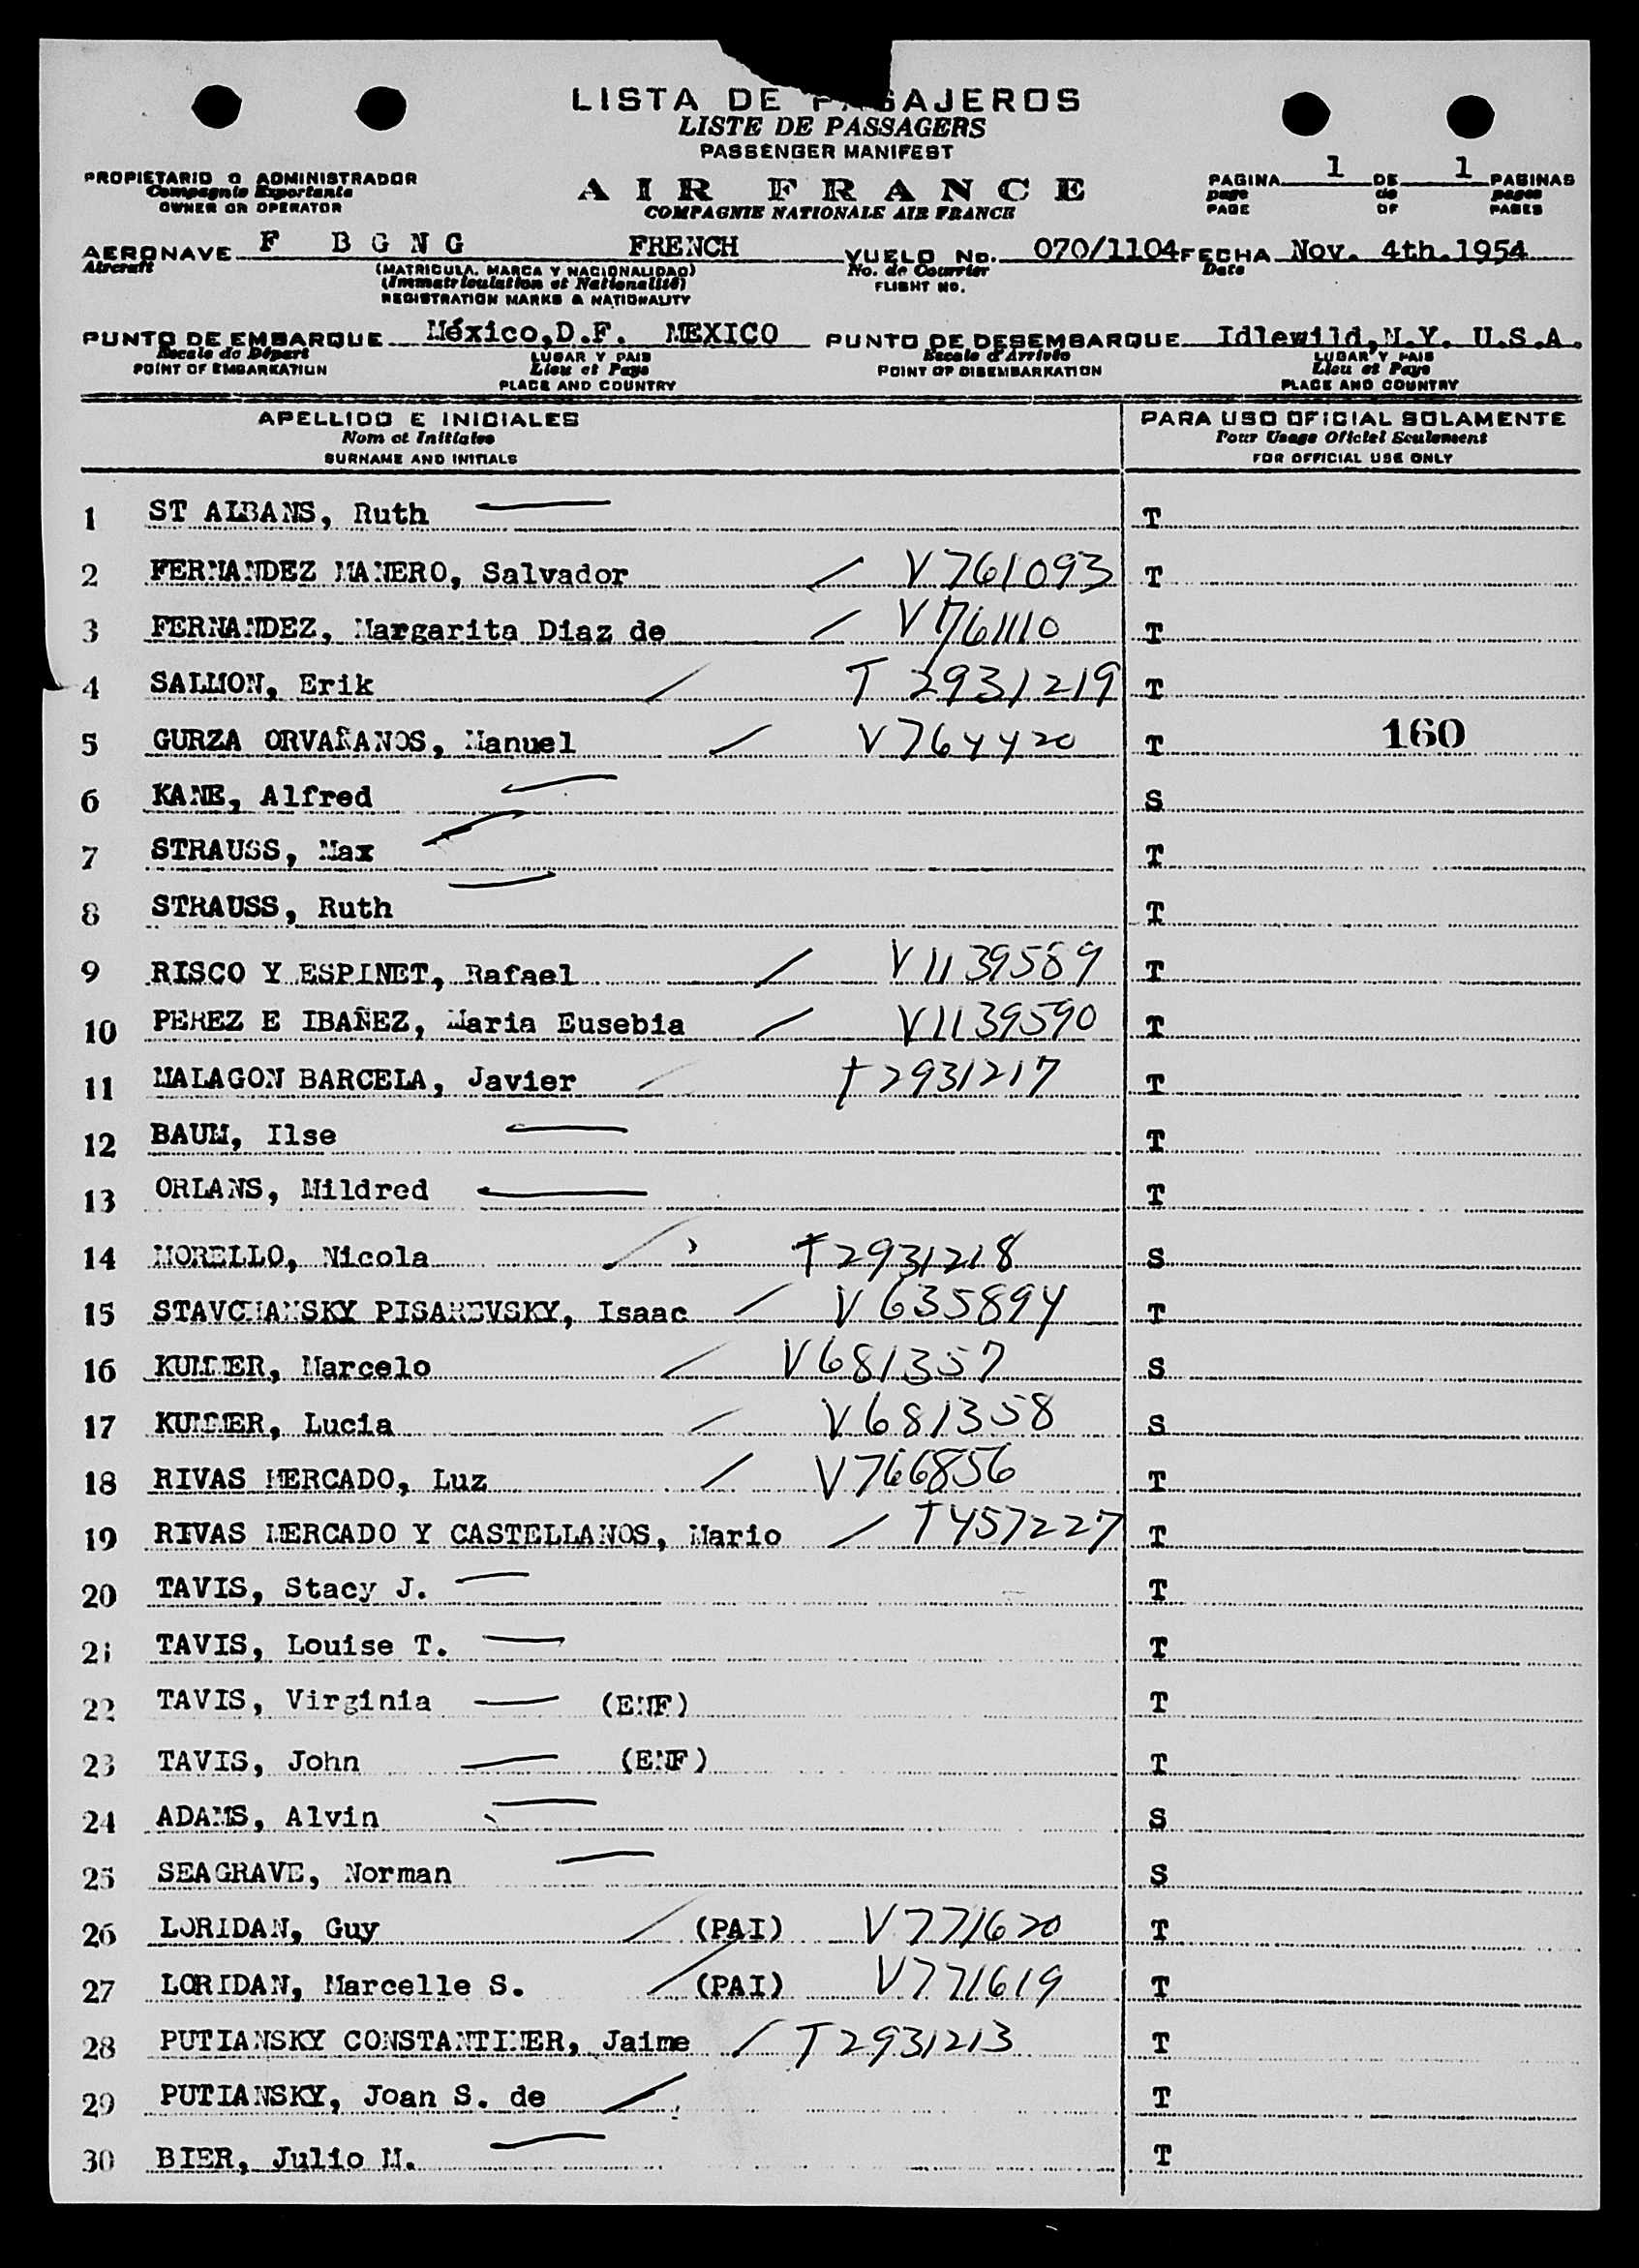 LISTA DE PASAJEROS
LISTE DE PASSAGERS
PASSENGER MANIFEST
PROPIETARIO O ADMINISTRADOR
Compagnie Exportante
OWNER OR OPERATOR
AIR FRANCE
COMPAGNIE NATIONALE AIR FRANCE
PAGINA 1 DE 1 PAGINAS
page de pages
PAGE OF PAGES
AERONAVE F BGNG FRENCH VUELO No. 070/1104 FECHA Nov. 4th.1954
Aircraft (MATRICULA, MARCA Y NACIONALIDAD) No. de Courrier Date
(Immatriculation et Nationalité) FLIGHT NO.
REGISTRATION MARKS & NATIONALITY
PUNTO DE EMBARQUE México,D.F. MEXICO PUNTO DE DESEMBARQUE Idlewild,N.Y. U.S.A.
Escale de Départ LUGAR Y PAIS Escale d'Arrivée LUGAR Y PAIS
POINT OF EMBARKATION Lieu et Pays POINT OF DISEMBARKATION Lieu et Pays
PLACE AND COUNTRY PLACE AND COUNTRY
APELLIDO E INICIALES PARA USO OFICIAL SOLAMENTE
Nom et Initiales Pour Usage Officiel Seulement
SURNAME AND INITIALS FOR OFFICIAL USE ONLY
1 ST ALBANS, Ruth T
2 FERNANDEZ MANERO, Salvador V761093 T
3 FERNANDEZ, Margarita Diaz de V761110 T
4 SALLMON, Erik T 2931219 T
5 GURZA ORVAÑANOS, Manuel V764420 T 160
6 KANE, Alfred S
7 STRAUSS, Max T
8 STRAUSS, Ruth T
9 RISCO Y ESPINET, Rafael V1139589 T
10 PEREZ E IBAÑEZ, Maria Eusebia V1139590 T
11 MALAGON BARCELA, Javier T2931217 T
12 BAUM, Ilse T
13 ORLANS, Mildred T
14 MORELLO, Nicola T2931218 S
15 STAVCHANSKY PISAREVSKY, Isaac V635894 T
16 KUMMER, Marcelo V681357 S
17 KUMMER, Lucia V681358 S
18 RIVAS MERCADO, Luz V766856 T
19 RIVAS MERCADO Y CASTELLANOS, Mario T457227 T
20 TAVIS, Stacy J. T
21 TAVIS, Louise T. T
22 TAVIS, Virginia (ENF) T
23 TAVIS, John (ENF) T
24 ADAMS, Alvin S
25 SEAGRAVE, Norman S
26 LORIDAN, Guy (PAI) V771620 T
27 LORIDAN, Marcelle S. (PAI) V771619 T
28 PUTIANSKY CONSTANTINER, Jaime T2931213 T
29 PUTIANSKY, Joan S. de T
30 BIER, Julio M. T